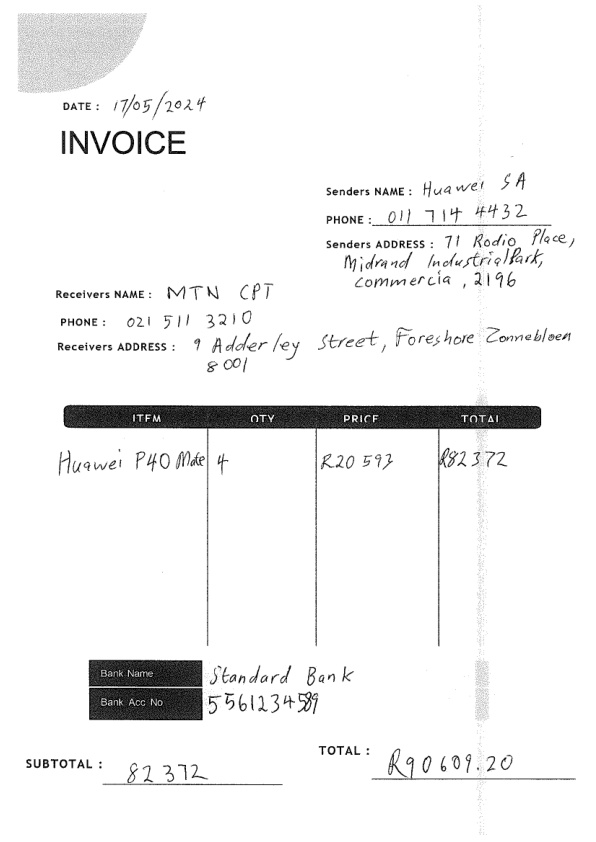 DATE : 17/05/2024
INVOICE
Senders NAME : Huawei SA
PHONE : 011 714 4432
Senders ADDRESS : 71 Rodio Place,
Midrand IndustrialPark,
Commercia, 2196
Receivers NAME : MTN CPT
PHONE : 021 511 3210
Receivers ADDRESS : 9 Adderley Street, Foreshore Zonnebloen
8001
ITEM QTY PRICE TOTAL
Huawei P40 Mate 4 R20 593 R82372
Bank Name Standard Bank
Bank Acc No
SUBTOTAL : 82372
TOTAL : R90609.20